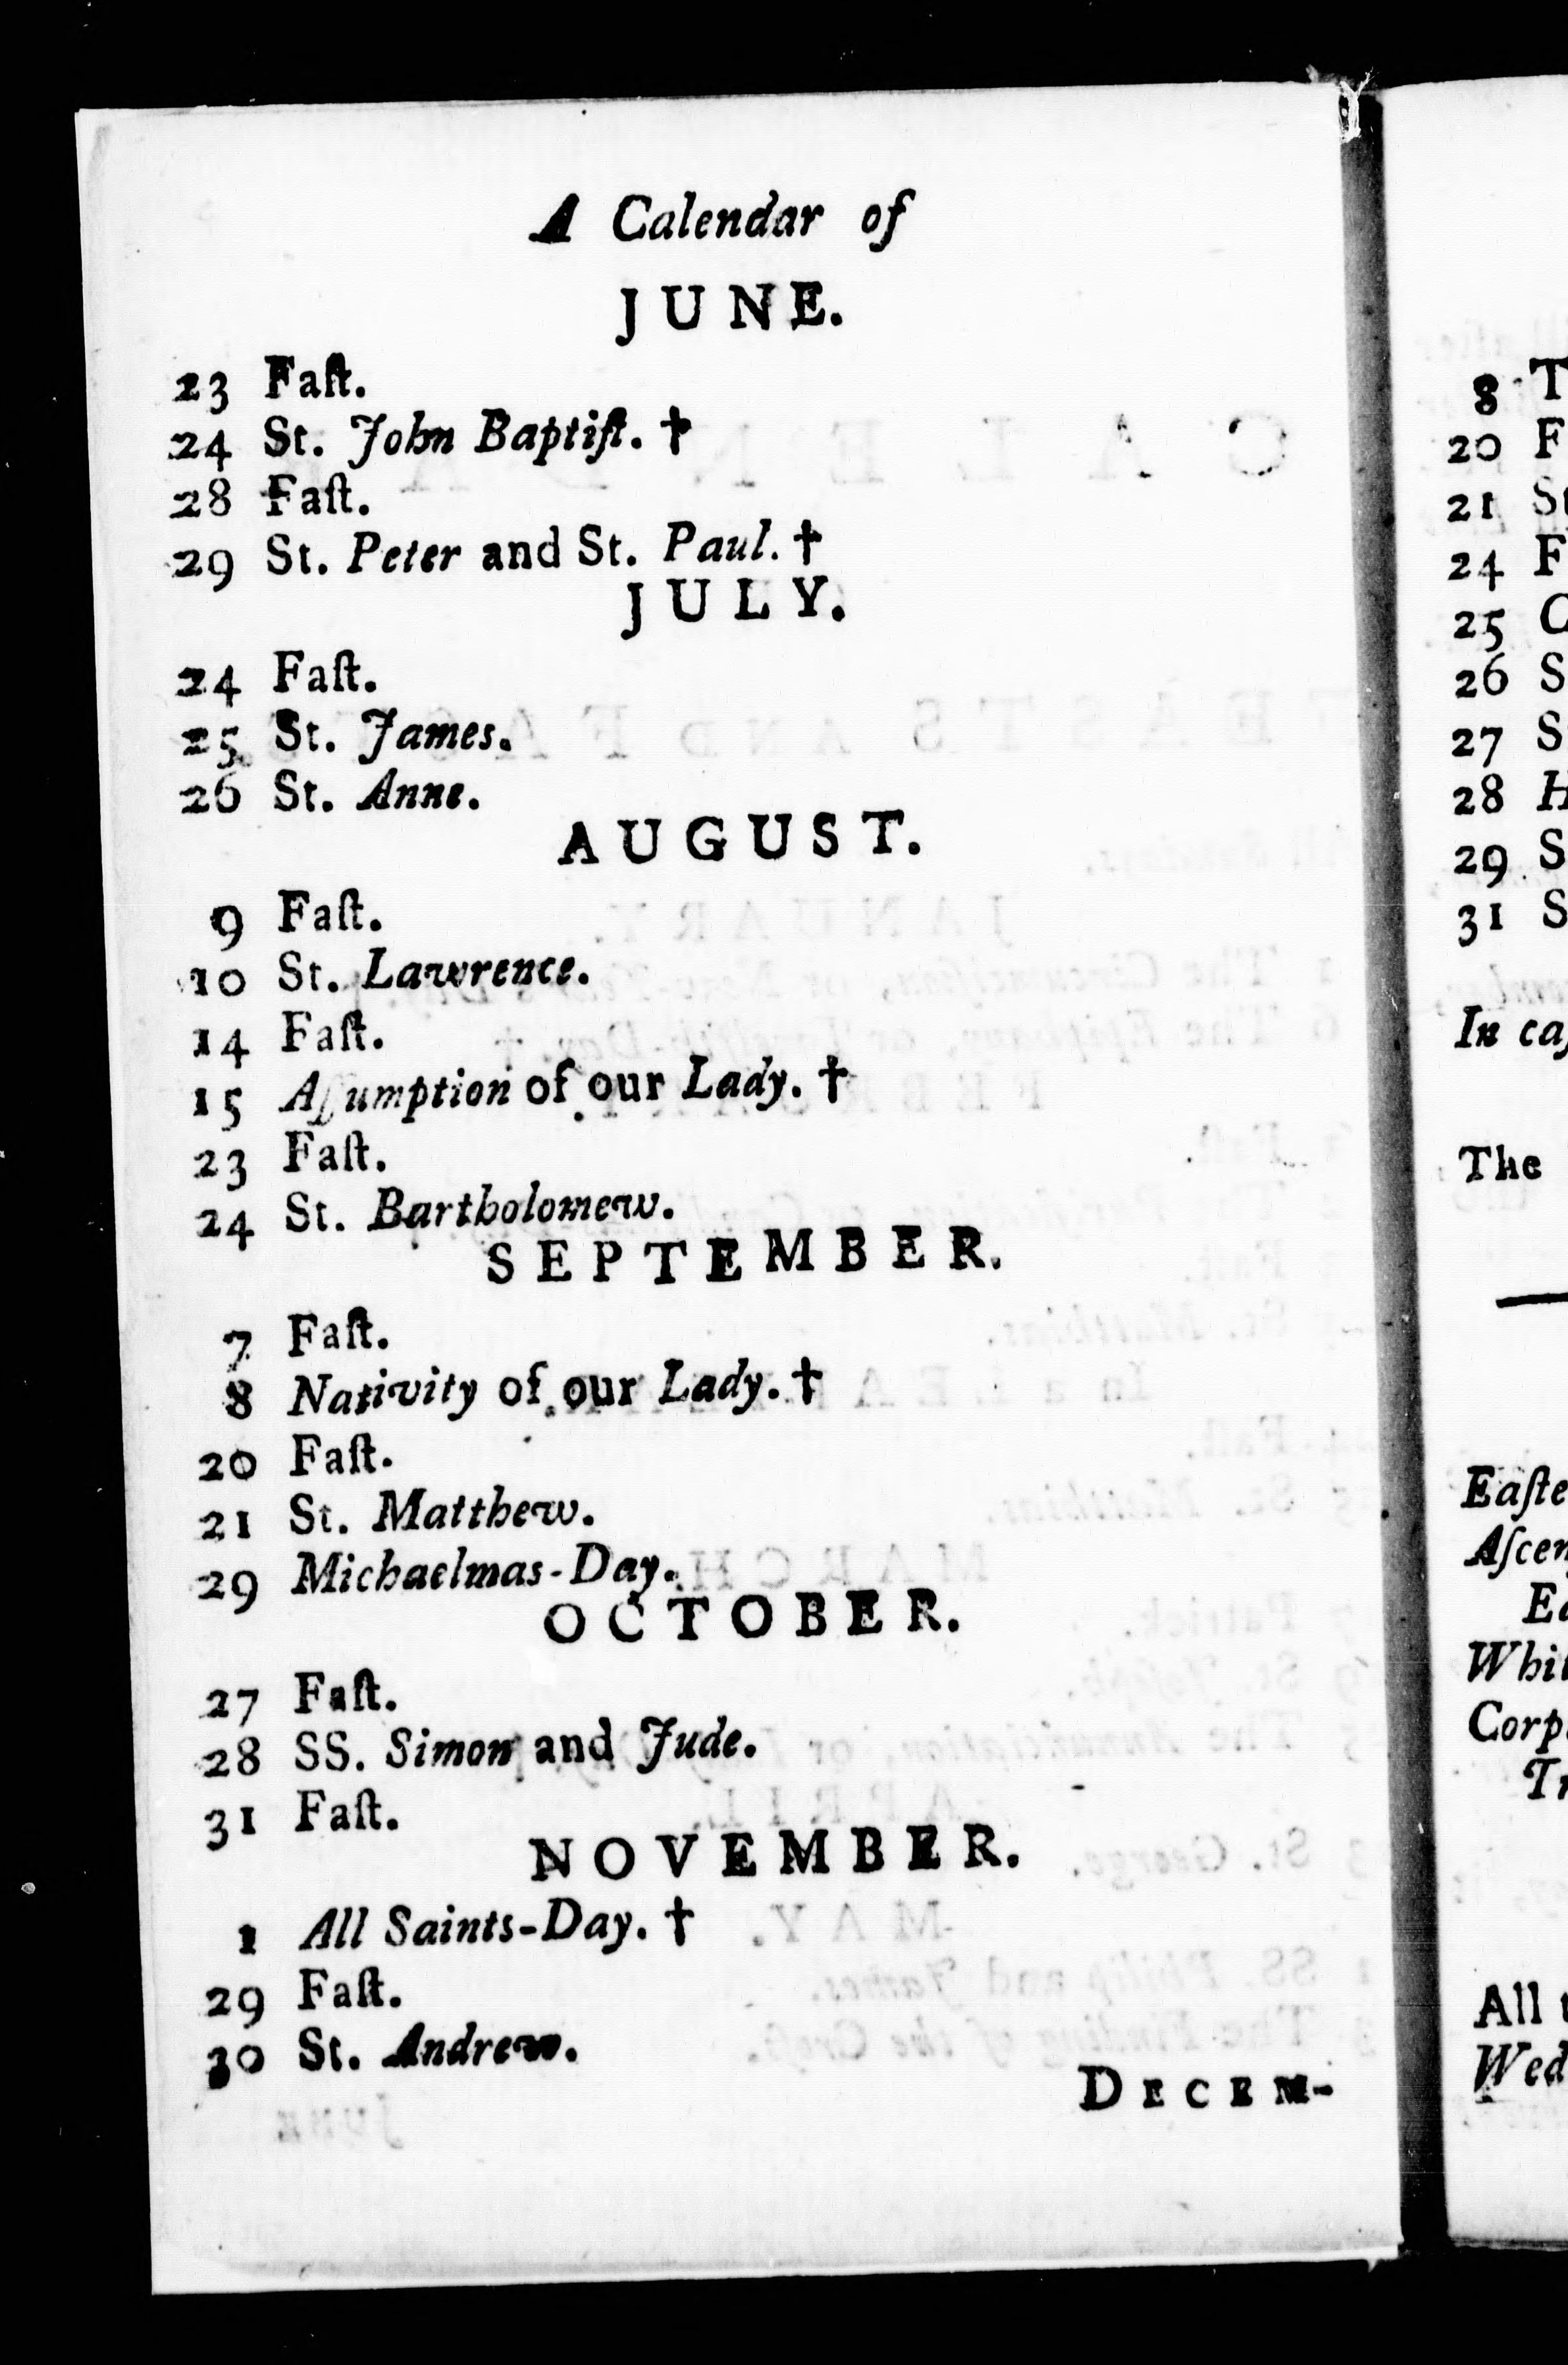 A Calendar of
JUNE.
23 Faſt.
24 St. John Baptiſt. †
28 Faſt.
29 St. Peter and St. Paul. †
JULY.
24 Faſt.
25 St. James.
26 St. Anne.
AUGUST.
9 Faſt.
10 St. Lawrence.
14 Faſt.
15 Aſſumption of our Lady. †
23 Faſt.
24 St. Bartholomew.
SEPTEMBER.
7 Faſt.
8 Nativity of our Lady. †
20 Faſt.
21 St. Matthew.
29 Michaelmas-Day.
OCTOBER.
27 Faſt.
28 SS. Simon and Jude.
31 Faſt.
NOVEMBER.
1 All Saints-Day. †
29 Faſt.
30 St. Andrew.
DECEM-
8
20
21
24
25
26
27
28
29
31
In
The
All